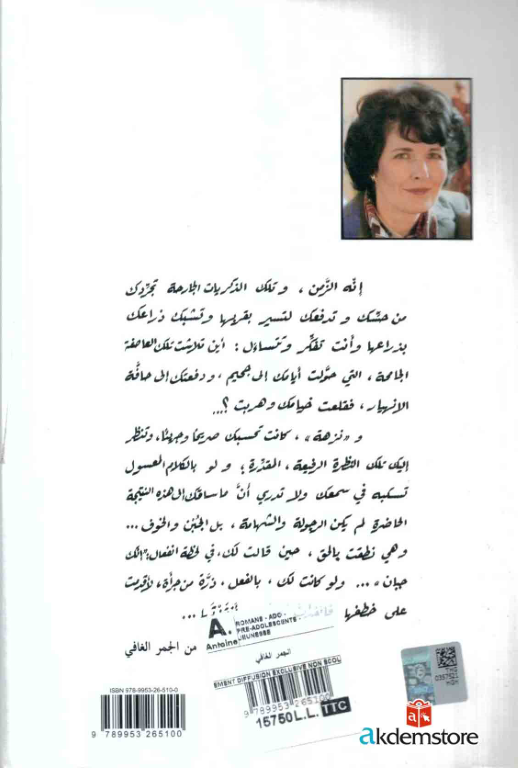 إنّه الزّمن، وتلك الذكريات الجارحة تجرّدك
من حسّك وتدفعك لتسير بقربها وتشبك ذراعك
بذراعها وأنت تفكّر وتتساءل: أين تلاشت تلك العاصفة
الجامحة، التي حوّلت أيامك إلى جحيم، ودفعتك إلى حافّة
الانهيار، فقلعت خيامك وهربت؟...
و «نزهة»، كانت تحسبك صريحًا وجريئًا، وتنظر
إليك تلك النظرة الرفيعة، المقدّرة؛ ولو بالكلام المعسول
تسكبه في سمعك ولا تدري أنَّ ما ساقك إلى هذه النتيجة
الحاضرة لم يكن الرجولة والشهامة، بل الجُبْن والخوف...
وهي نطقت بالحق، حين قالت لك، في لحظة انفعال: "إنّك
جبان"... ولو كانت لك، بالفعل، ذرّة من جرأة، لأقدمت
على خطفها
من الجمر الغافي
A.
Antoine
ROMANS - ADO -
PRE-ADOLESCENTS -
JEUNESSE
الجمر الغافي
EMENT DIFFUSION EXCLUSIVE NON SCOL
9 789953 265100
15750 L.L. TTC
ISBN 978-9953-26-510-0
9 789953 265100
akdemstore